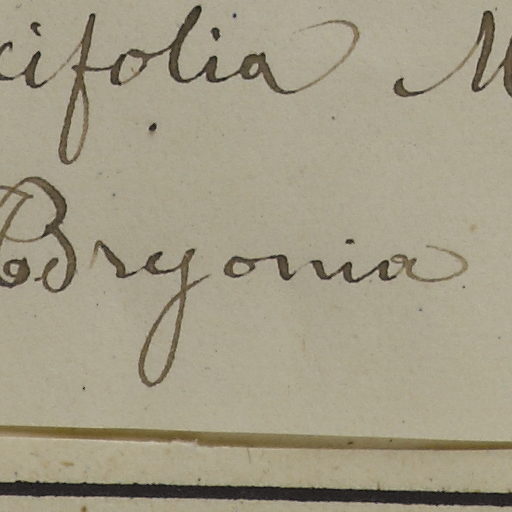 cifolia M
Bryonia